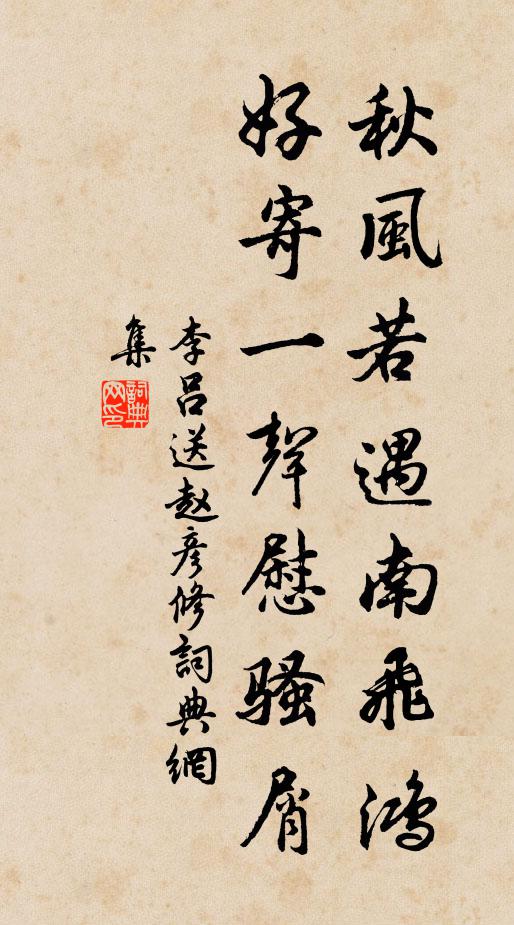 秋風若遇南飛鴻
好寄一聲慰騷屑
李吕送赵彦修詞典網
集
詞典网印